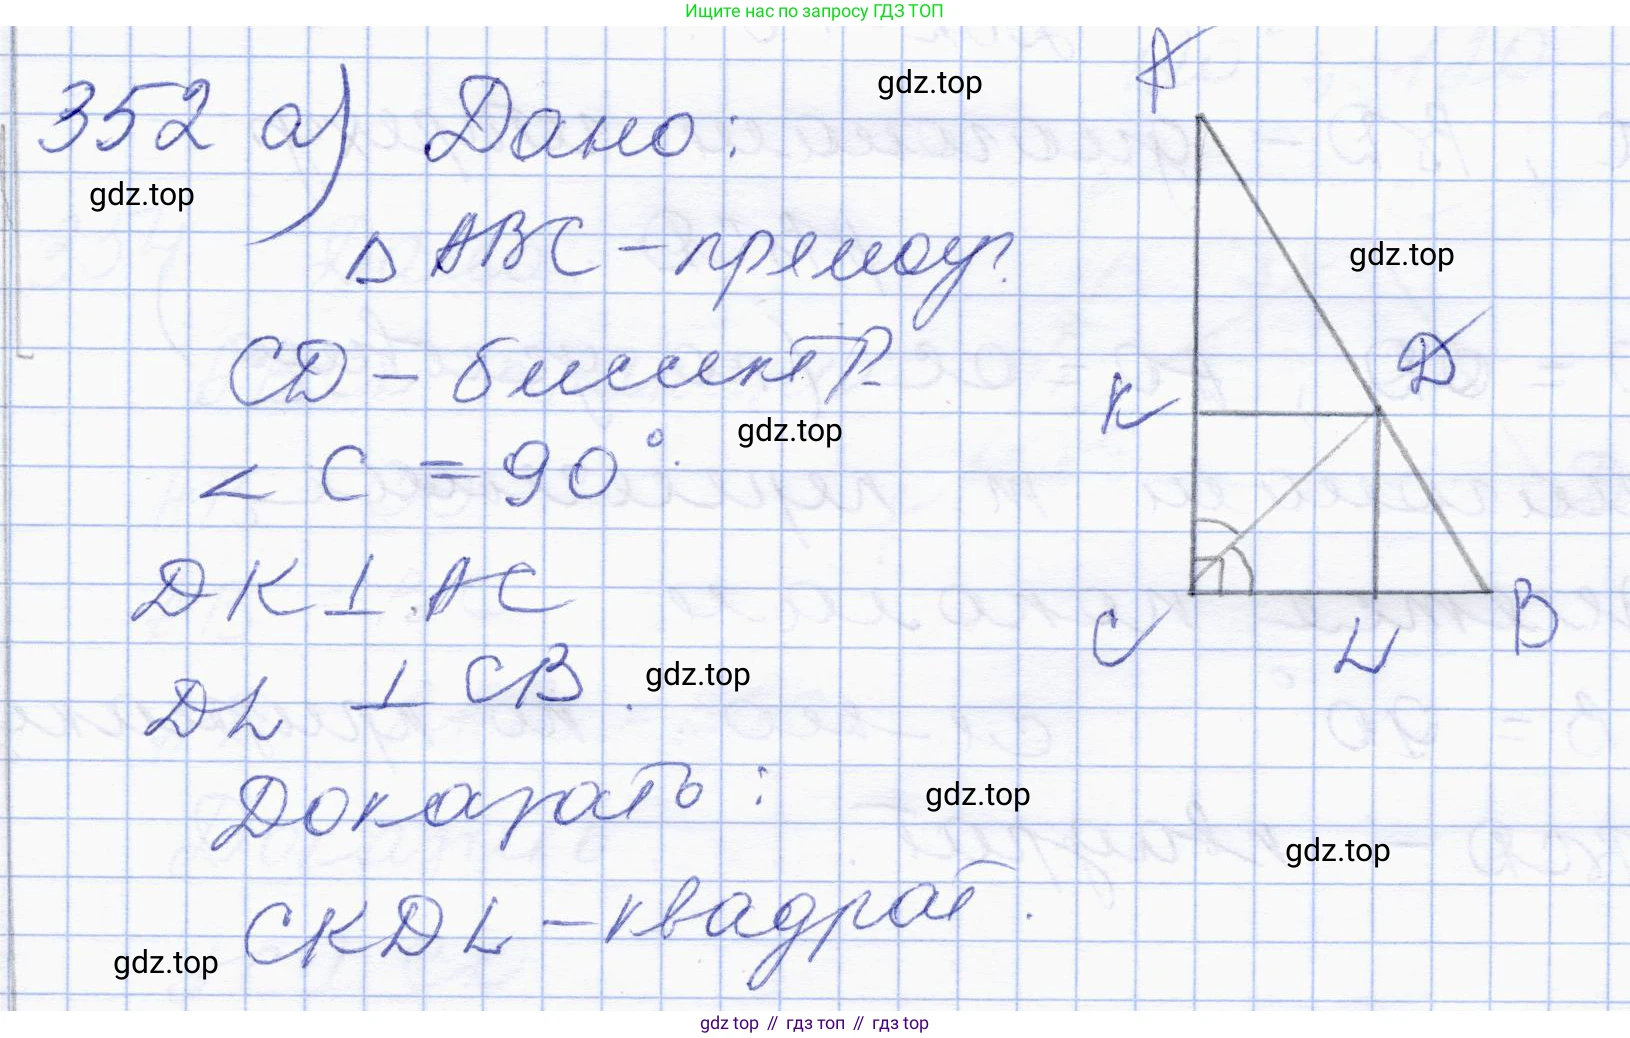 Ищите нас по запросу ГДЗ ТОП
352 а) Дано:
gdz.top
gdz.top
Δ ABC – прямоуг.
gdz.top
CD – биссект р.
< C = 90°.
gdz.top
DK ⊥ AC
DL ⊥ CB.
gdz.top
Доказать:
gdz.top
gdz.top
CKDL – квадрат.
gdz.top
A
D
K
C
L
B
gdz top // гдз топ // гдз top